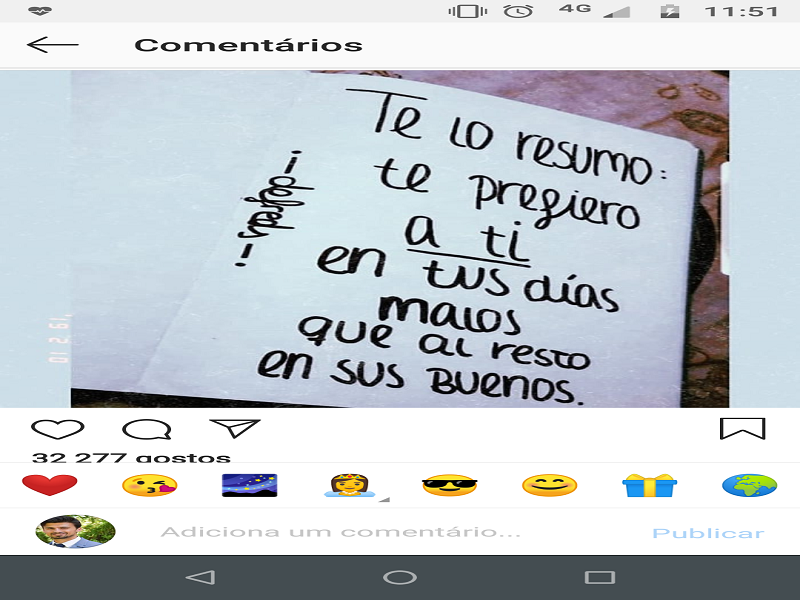 4G 11:51
Comentários
Te lo resumo:
te prefiero
a ti
en tus días
malos
que al resto
en sus buenos.
32 277 gostos
Adiciona um comentário...
Publicar